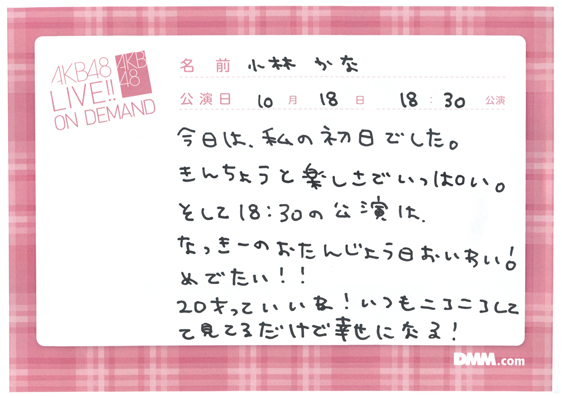 AKB48
LIVE!!
ON DEMAND
AKB
48
名前 小林 かな
公演日 10月 18日 18:30公演
今日は、私の初日でした。
きんちょうと楽しさでいっぱい。
そして18:30の公演は、
なっきーのおたんじょう日おいわい!
めでたい!!
20才っていいな!いつもニコニコして
て見てるだけで幸せになる!
DMM.com